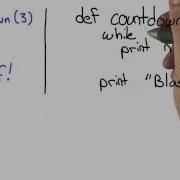 wn(3)
!
def countdown
while
print
print "Blas